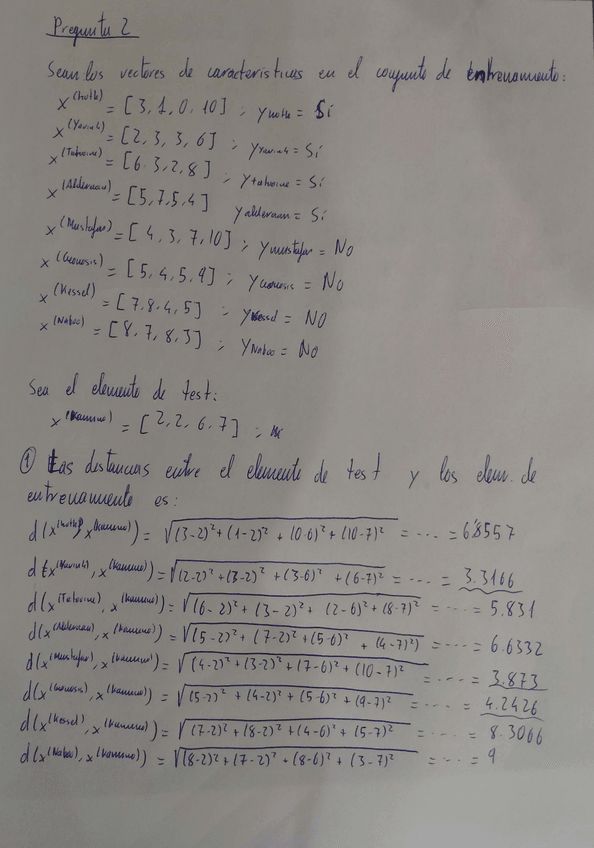 Pregunta 2
Sean los vectores de características en el conjunto de entrenamiento:
x^(hoth) = [3, 1, 0, 10] ; y_hoth = Sí
x^(Yavin4) = [2, 3, 3, 6] ; y_Yavin4 = Sí
x^(Tatooine) = [6, 3, 2, 8] ; y_tatooine = Sí
x^(Alderaan) = [5, 7, 5, 4] y_alderaan = Sí
x^(Mustafar) = [4, 3, 7, 10] ; y_mustafar = No
x^(Geonosis) = [5, 4, 5, 9] ; y_Geonosis = NO
x^(Kessel) = [7, 8, 4, 5] ; y_Kessel = NO
x^(Naboo) = [8, 7, 8, 3] ; y_Naboo = No
Sea el elemento de test:
x^(Kamino) = [2, 2, 6, 7] ;
① Las distancias entre el elemento de test y los elem. de
entrenamiento es:
d(x^(hoth), x^(Kamino)) = √((3-2)² + (1-2)² + (0-6)² + (10-7)²) = ... = 6.8557
d(x^(Yavin4), x^(Kamino)) = √((2-2)² + (3-2)² + (3-6)² + (6-7)²) = ... = 3.3166
d(x^(Tatooine), x^(Kamino)) = √((6-2)² + (3-2)² + (2-6)² + (8-7)²) = ... = 5.831
d(x^(Alderaan), x^(Kamino)) = √((5-2)² + (7-2)² + (5-6)² + (4-7)²) = ... = 6.6332
d(x^(Mustafar), x^(Kamino)) = √((4-2)² + (3-2)² + (7-6)² + (10-7)²) = ... = 3.873
d(x^(Geonosis), x^(Kamino)) = √((5-2)² + (4-2)² + (5-6)² + (9-7)²) = ... = 4.2426
d(x^(Kessel), x^(Kamino)) = √((7-2)² + (8-2)² + (4-6)² + (5-7)²) = ... = 8.3066
d(x^(Naboo), x^(Kamino)) = √((8-2)² + (7-2)² + (8-6)² + (3-7)²) = ... = 9